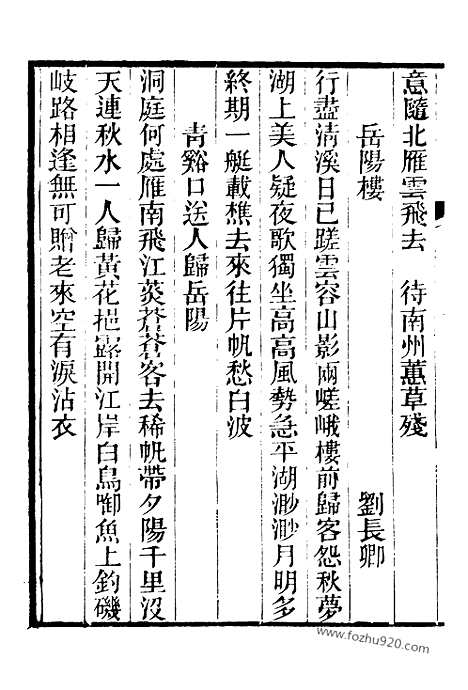 意隨北雁雲飛去　待南州蕙草殘
岳陽樓　劉長卿
行盡清溪日已蹉雲容山影兩嵯峨樓前歸客怨秋夢
湖上美人疑夜歌獨坐高高風勢急平湖渺渺月明多
終期一艇載樵去來往片帆愁白波
青谿口送人歸岳陽
洞庭何處雁南飛江菼蒼蒼客去稀帆帶夕陽千里沒
天連秋水一人歸黃花裛露開江岸白鳥啣魚上釣磯
岐路相逢無可贈老來空有淚沾衣
www.fozhu920.com